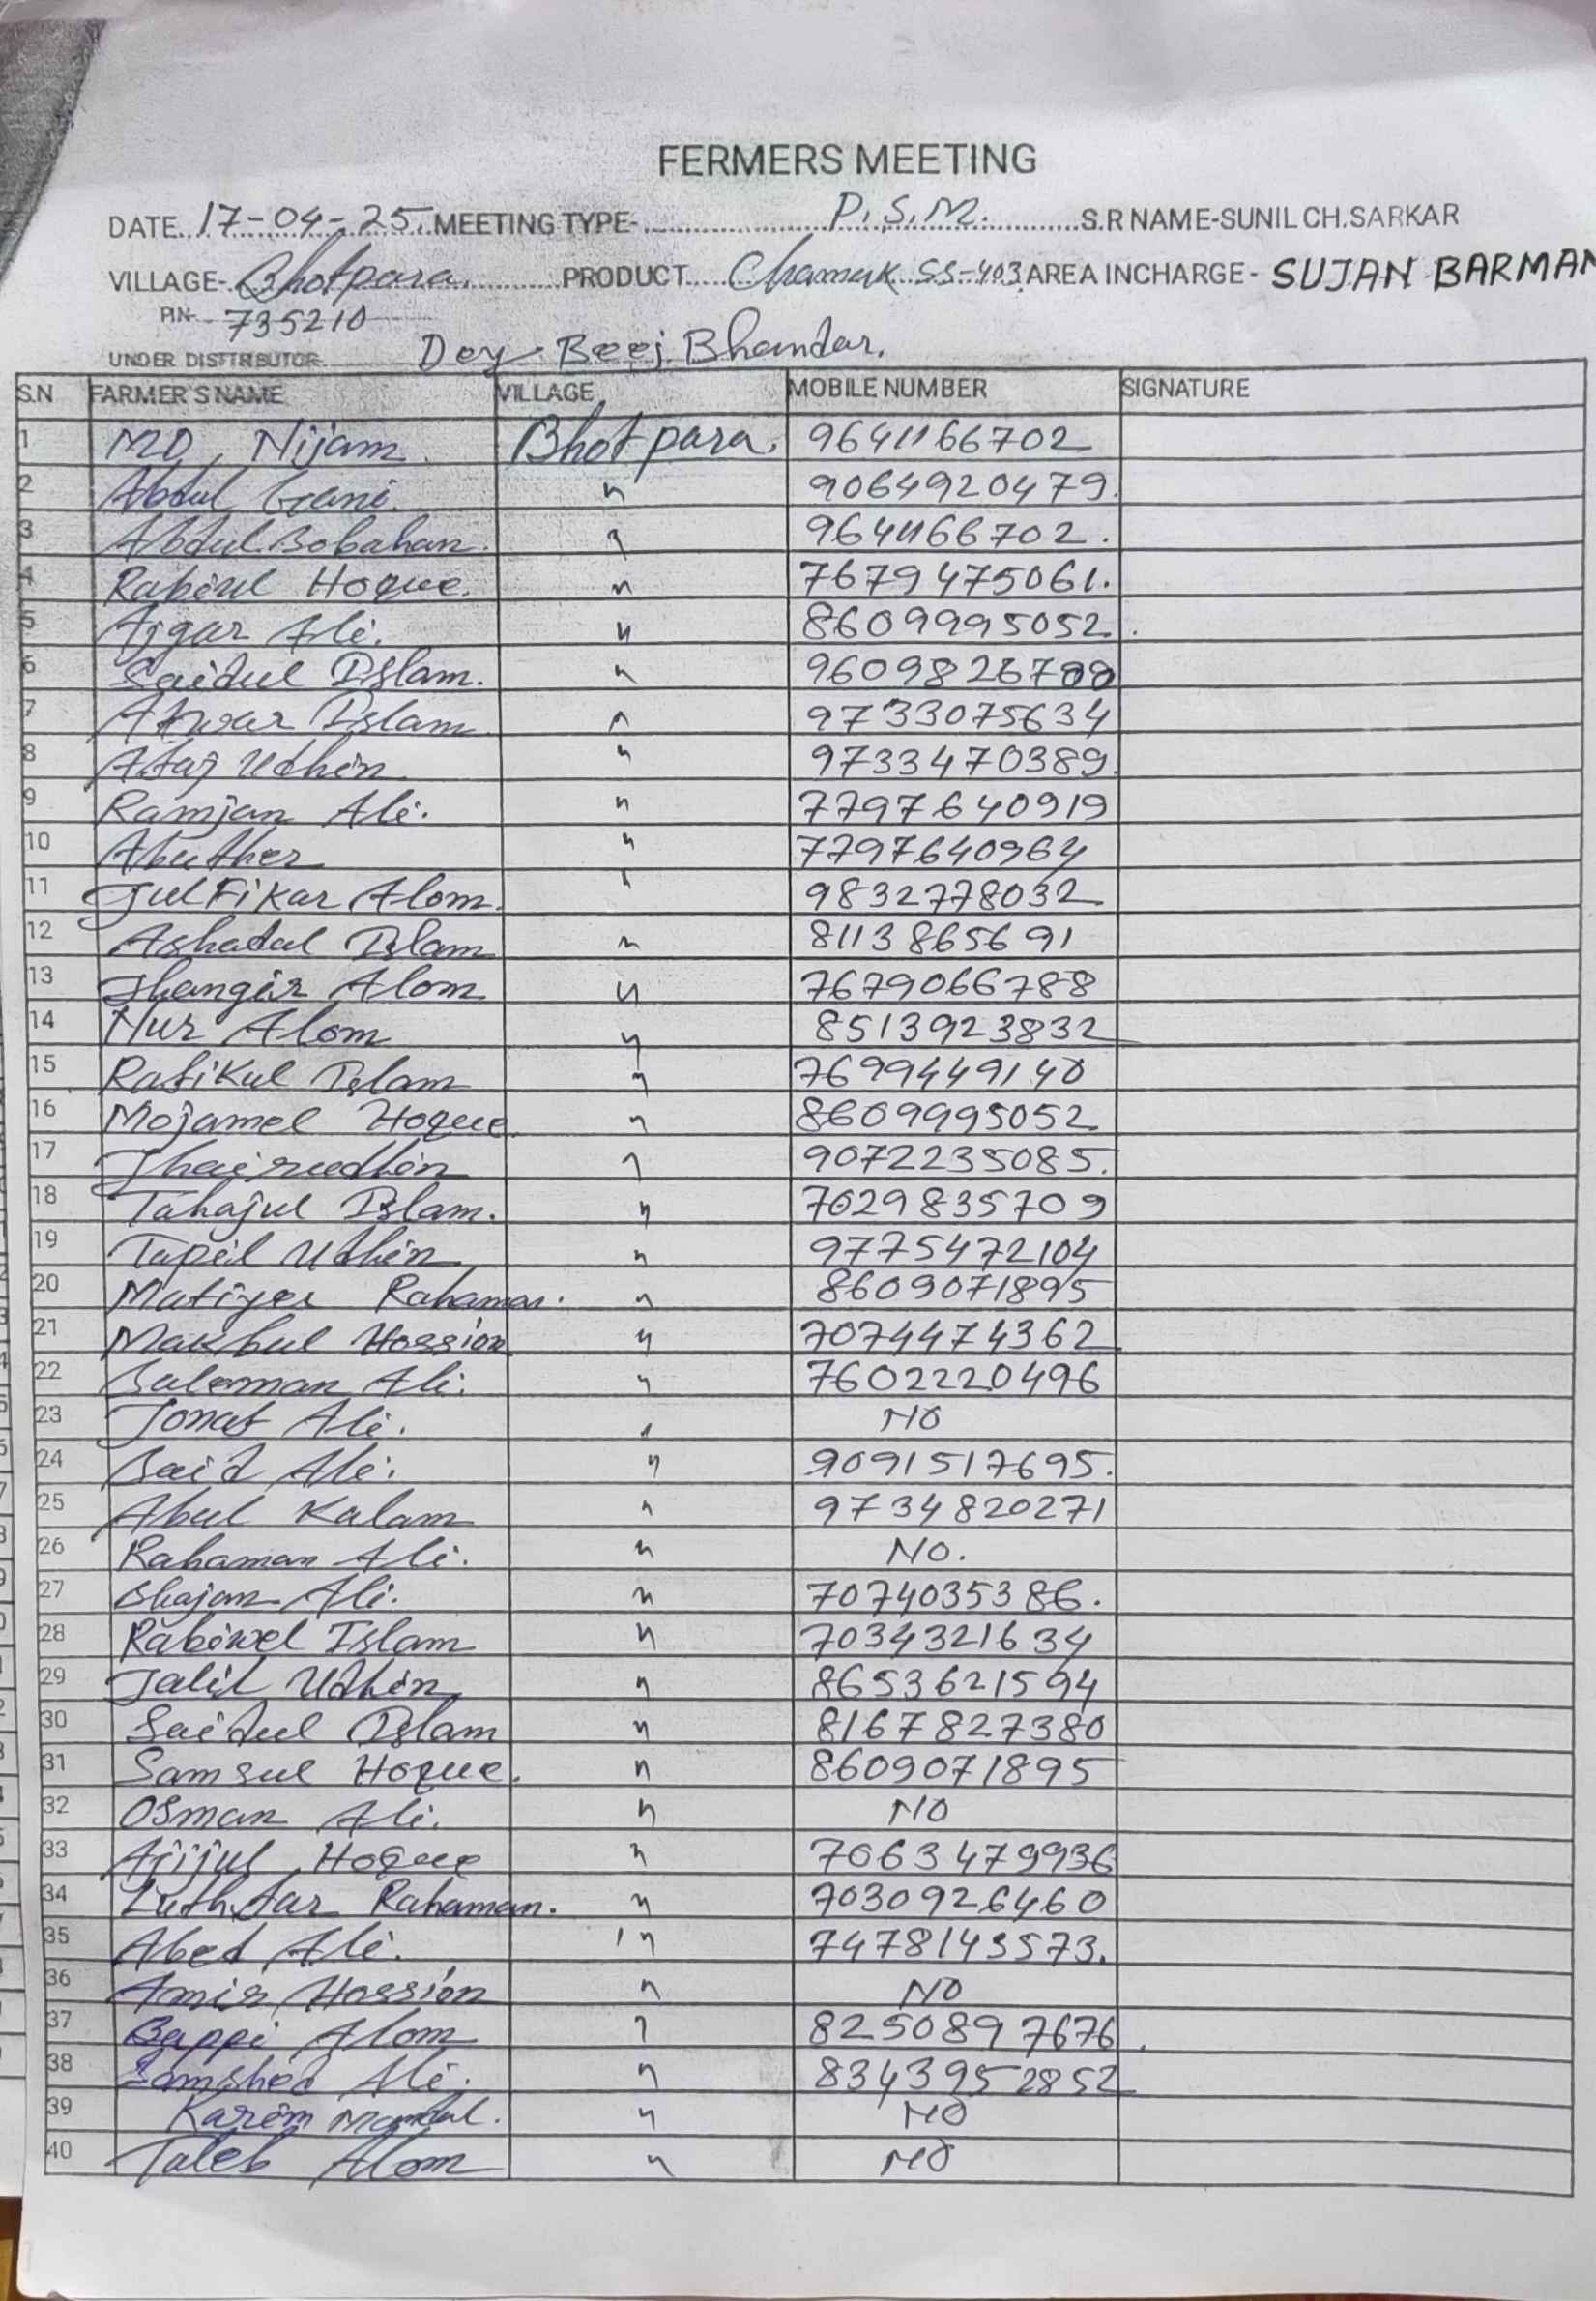 FERMERS MEETING
DATE. 17-04-25. MEETING TYPE- P.S.M. S.R NAME-SUNIL CH.SARKAR
VILLAGE- Bhotpara. PRODUCT Chamak SS-403 AREA INCHARGE- SUJAN BARMAN
PIN- 735210
UNDER DISTTRIBUTOR Dey Beej Bhandar.
S.N FARMER'S NAME VILLAGE MOBILE NUMBER SIGNATURE
1 MD, Nijam. Bhotpara. 9641166702
2 Abdul Gani. " 9064920479.
3 Abdul Sobahan. " 9641166702.
4 Rabiul Hoque. " 7679475061.
5 Ajgar Ali. " 8609995052.
6 Saidul Islam. " 9609826700
7 Anwar Islam " 9733075634
8 Ataj Udhin. " 9733470389.
9 Ramjan Ali. " 7797640919
10 Abuther " 7797640964
11 JulFikar Alom. " 9832778032
12 Ashadul Islam " 8113865691
13 Jhangir Alom " 7679066788
14 Nur Alom " 8513923832
15 Rafikul Islam " 7699449140
16 Mojamel Hoque. " 8609995052
17 Jhairudhin " 9072235085.
18 Tahajul Islam. " 7029835709
19 Tapil Udhin " 9775472104
20 Matiyer Rahaman. " 8609071895
21 Makbul Hossion " 7074474362
22 Saleman Ali. " 7602220496
23 Jonab Ali. " NO
24 Said Ali. " 9091517695.
25 Abul Kalam " 9734820271
26 Rahaman Ali. " NO.
27 Shajan Ali. " 7074035386.
28 Rabiwel Islam " 7034321634
29 Jalil Udhin " 8653621594
30 Saidul Islam " 8167827380
31 Samsul Hoque. " 8609071895
32 Osman Ali. " NO
33 Ajijul Hoque " 7063479936
34 Luthfar Rahaman. " 7030926460
35 Abed Ali. " 7478143573.
36 Amir Hossion " NO
37 Bappi Alom " 8250897676.
38 Samshed Ali. " 8343952852
39 Karim Mondul. " NO
40 Taleb Alom " NO